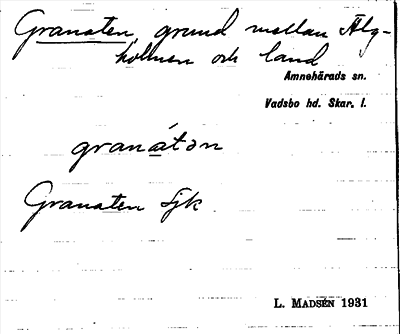 Granaten, grund mellan Älg-
holmen och land
Amnehärads sn.
Vadsbo hd. Skar. l.
granát ən
Granaten Sjk
L. MADSÉN 1931